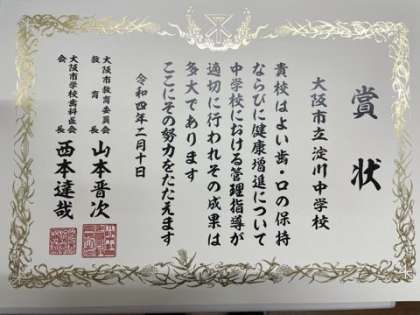 賞状
大阪市立淀川中学校
貴校はよい歯・口の保持
ならびに健康増進について
中学校における管理指導が
適切に行われその成果は
多大であります
ここにその努力をたたえます
令和四年二月十日
大阪市教育委員会
教育長 山本晋次
大阪市学校歯科医会
会長 西本達哉